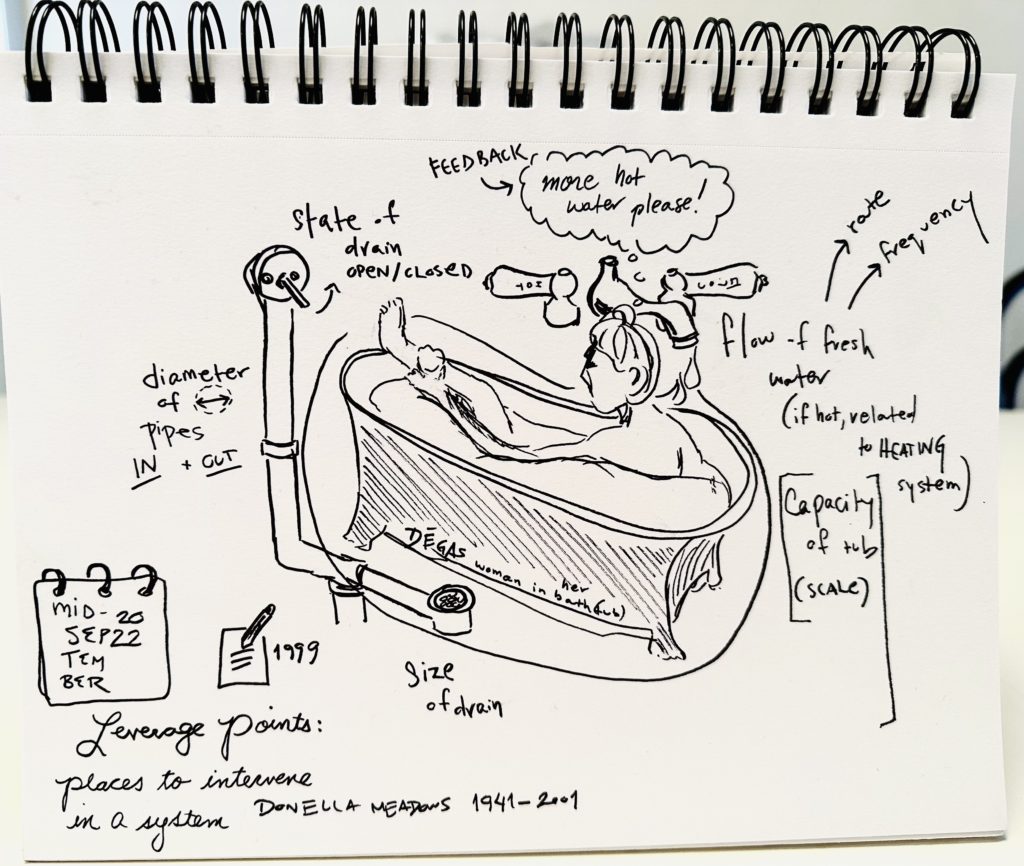 FEEDBACK
more hot
water please!
rate
frequency
State of
drain
OPEN/CLOSED
HOT
COLD
flow of fresh
water
(if hot, related
to HEATING
system)
diameter
of
pipes
IN + OUT
Capacity
of tub
(SCALE)
DEGAS
woman in her
bath (tub)
MID-20
SEP22
TEM
BER
1999
Size
of drain
Leverage Points:
places to intervene
in a system
DONELLA MEADOWS 1941-2001